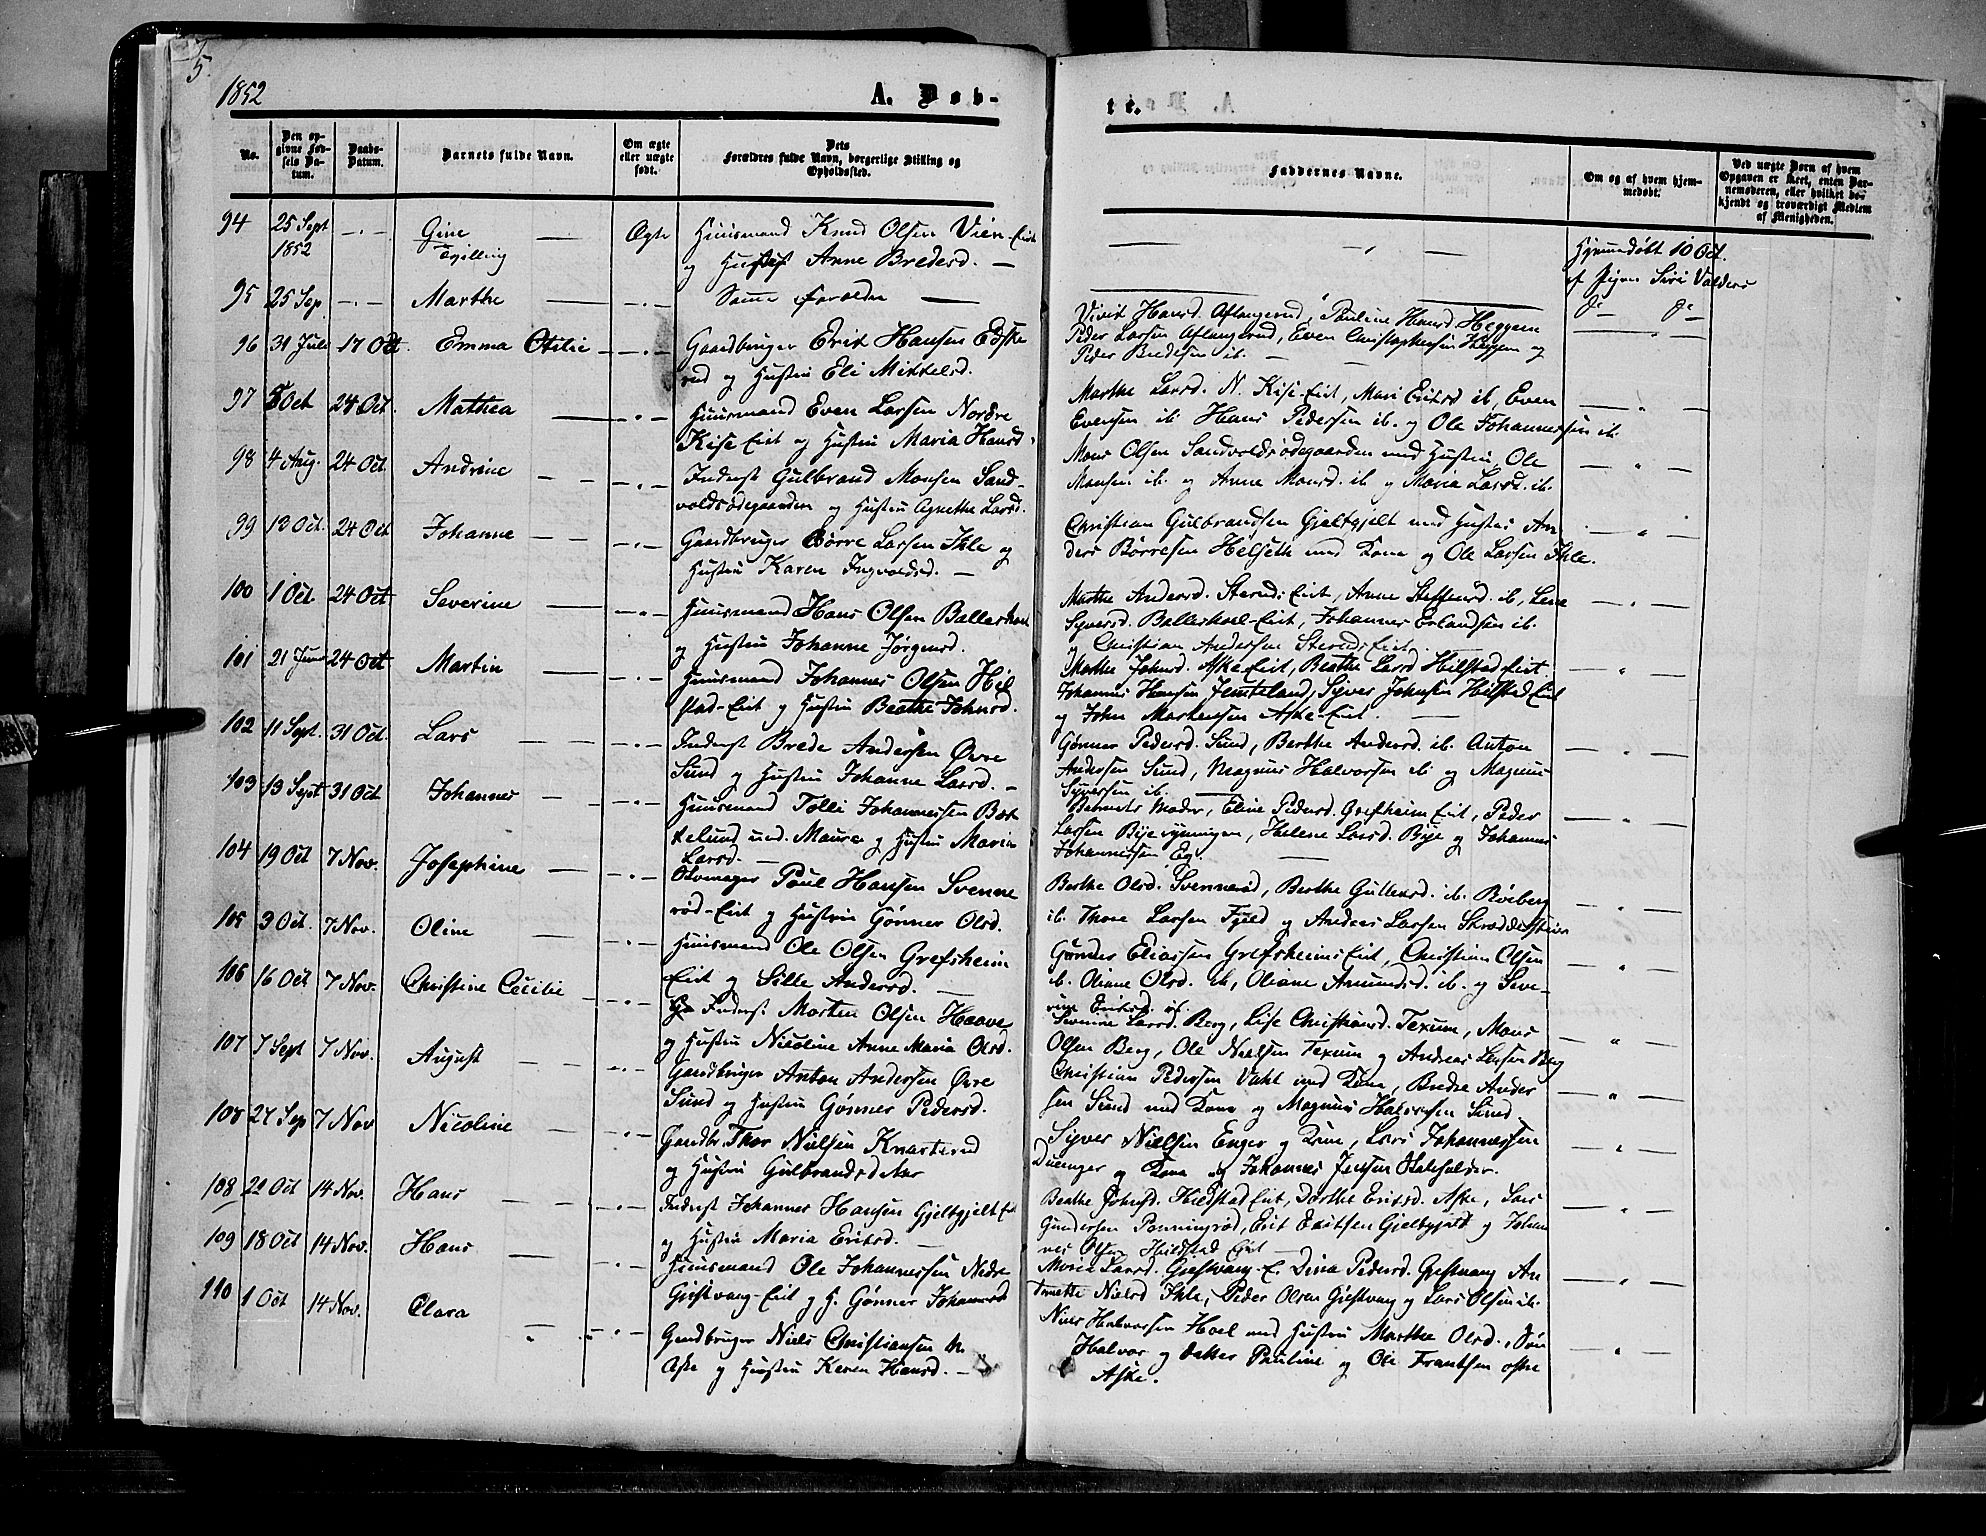 5
1852
A. Døb-
te.
No.
Den opgivne Fødsels Datum.
Daabs-Datum.
Barnets fulde Navn.
Om ægte eller uægte født.
Dets Forældres fulde Navn, borgerlige Stilling og Opholdssted.
Faddernes Navne.
Om og af hvem hjemmedøbt.
Ved uægte Børn af hvem Opgaven er skeet, enten Barnemoderen, eller hvilket bekjendt og troværdigt Medlem af Menigheden.
94 25 Sept 1852 Gine Tvilling Ægte Huusmand Knud Olsen Vien-Eiet
og Anne Bredesd. Hjemmedøbt 10 Oct.
af Pigen Siri Valders
95 25 Sep. Marthe Samme Forældre
96 31 Juli 17 Oct. Emma Otilie Gaardbruger Erik Hansen
rud og Hustru Eli Mikkelsd.
Hansd. Aflangerud, Pauline Hansd. Heggem
Peder Larsen Aflangerud, Even Christophersen Heggem og
Peder Bredesen ib.
97 5 Oct 24 Oct. Mathea Huusmand Even Larsen Nordre
Kise Eiet og Hustru Maria Hansd.
Marthe Larsd. N. Kise-Eiet, Mari Eriksd ib, Even
Evensen ib. Hans Pedersen ib. og Ole Johannessen ib.
98 4 Aug. 24 Oct. Andrine Inderst Gulbrand Monsen Sand-
voldsødegaarden og Hustru Agnethe Larsd.
Mons Olsen Sandvoldsødegaarden med Hustru, Ole
Monsen ib. og Anne Monsd. ib og Maria Larsd. ib.
99 12 Oct. 24 Oct Johanne Gaardbruger Børre Larsen Ihle og
Hustru Karen Ingvoldsd.
Christian Gulbrandsen Gjeltgjelt med Hustru An
ders Børresen Helseth med Kone og Ole Larsen Ihle.
100 1 Oct 24 Oct Severine Huusmand Hans Olsen Balleshoel
og Hustru Johanne Jørgensd.
Marthe Andersd. Eiet, Anne Steffensd. ib, Lene
Syversd. Balleshoel-Eiet, Johannes Erlandsen ib.
og Christian Andersen Eiet.
101 21 Juni 24 Oct Martin Huusmand Johannes Olsen Hil
stad-Eiet og Hustru Beathe Johnsd.
Marthe Johnsd. Aske-Eiet, Beathe Larsd Hilstad-Eiet
Johannes Hansen Jemteland, Syver Johnsen Hilstad-Eiet
og John Mortensen Aske-Eiet.
102 11 Sept. 31 Oct. Lars Inderst Brede Andersen Øvre
Sund og Hustru Johanne Larsd.
Gønner Pedersd. Sund, Berthe Andersd. ib. Anton
Andersen Sund, Magnus Halvorsen ib og Magnus
Syversen ib.
103 13 Sept 31 Oct Johannes Huusmand Tolli Johannessen Bæk
kelund und. Maura og Hustru Maria
Larsd.
Barnets Moder, Eline Pedersd. Grefsheim Eiet, Peder
Larsen Byerydningen, Helene Larsd. Bye og Johannes
Johannessen Eg.
104 19 Oct 7 Nov. Josephine Poul Hansen Svenne
rød-Eiet og Hustru Gønner Olsd.
Berthe Olsd. Svennerød, Berthe Gulbrandsd. ib.
ib. Thore Larsen Fjeld og Anders Larsen
105 3 Oct. 7 Nov. Oline Huusmand Ole Olsen Grefsheim
Eiet og Sille Andersd.
Eliassen Grefsheim-Eiet, Christian Olsen
ib. Oliane Olsd. ib, Oliane Amundsd. ib. og Seve-
rine Eriksd. ib.
106 16 Oct 7 Nov. Christine Cecilie Inderst Morten Olsen Haave
og Hustru Nicoline Anne Maria Olsd.
Larsd. Berg, Lise Christiansd. Texum, Mons
Olsen Berg, Ole Nielsen Texum og Andreas Larsen Berg
107 7 Sept 7 Nov. August Gaardbruger Anton Andersen Øvre
Sund og Hustru Gønner Pedersd.
Christian Pedersen Vahl med Kone, Brede Ander
sen Sund med Kone og Magnus Halvorsen Sund.
108 27 Sep 7 Nov Nicoline Gaardbr. Thor Nielsen Knarterud
og Hustru Gulbrandsd.
Syver Nielsen Enger og Kone, Lars Johannessen
og Kone og Johannes Jensen
108 22 Oct 14 Nov. Hans Inderst Johannes Hansen Gjeltgjelt Eiet
og Hustru Maria Eriksd.
Beathe Johnsd. Hildstad Eiet, Dorthe Eriksd. Aske, Lars
Gundersen Ponningrød, Erik Gjeltgjelt og Johan
nes Olsen Hildstad Eiet
109 18 Oct 14 Nov. Hans Huusmand Ole Johannessen Nedre
Gjestvang-Eiet og H. Gønner Johannesd
Maria Larsd. Gjestvang-E. Dina Pedersd. Gjestvang An
Nielsd Ihle, Peder Olsen Gjestvang og Lars Olsen ib.
110 1 Oct 14 Nov. Clara Gaardbruger Niels Christiansen
Aske og Hustru Karen Hansd.
Niels Halvorsen Hoel med Hustru Marthe Olsd., Søn
Halvor og Datter Pauline og Ole Frantsen
Aske.